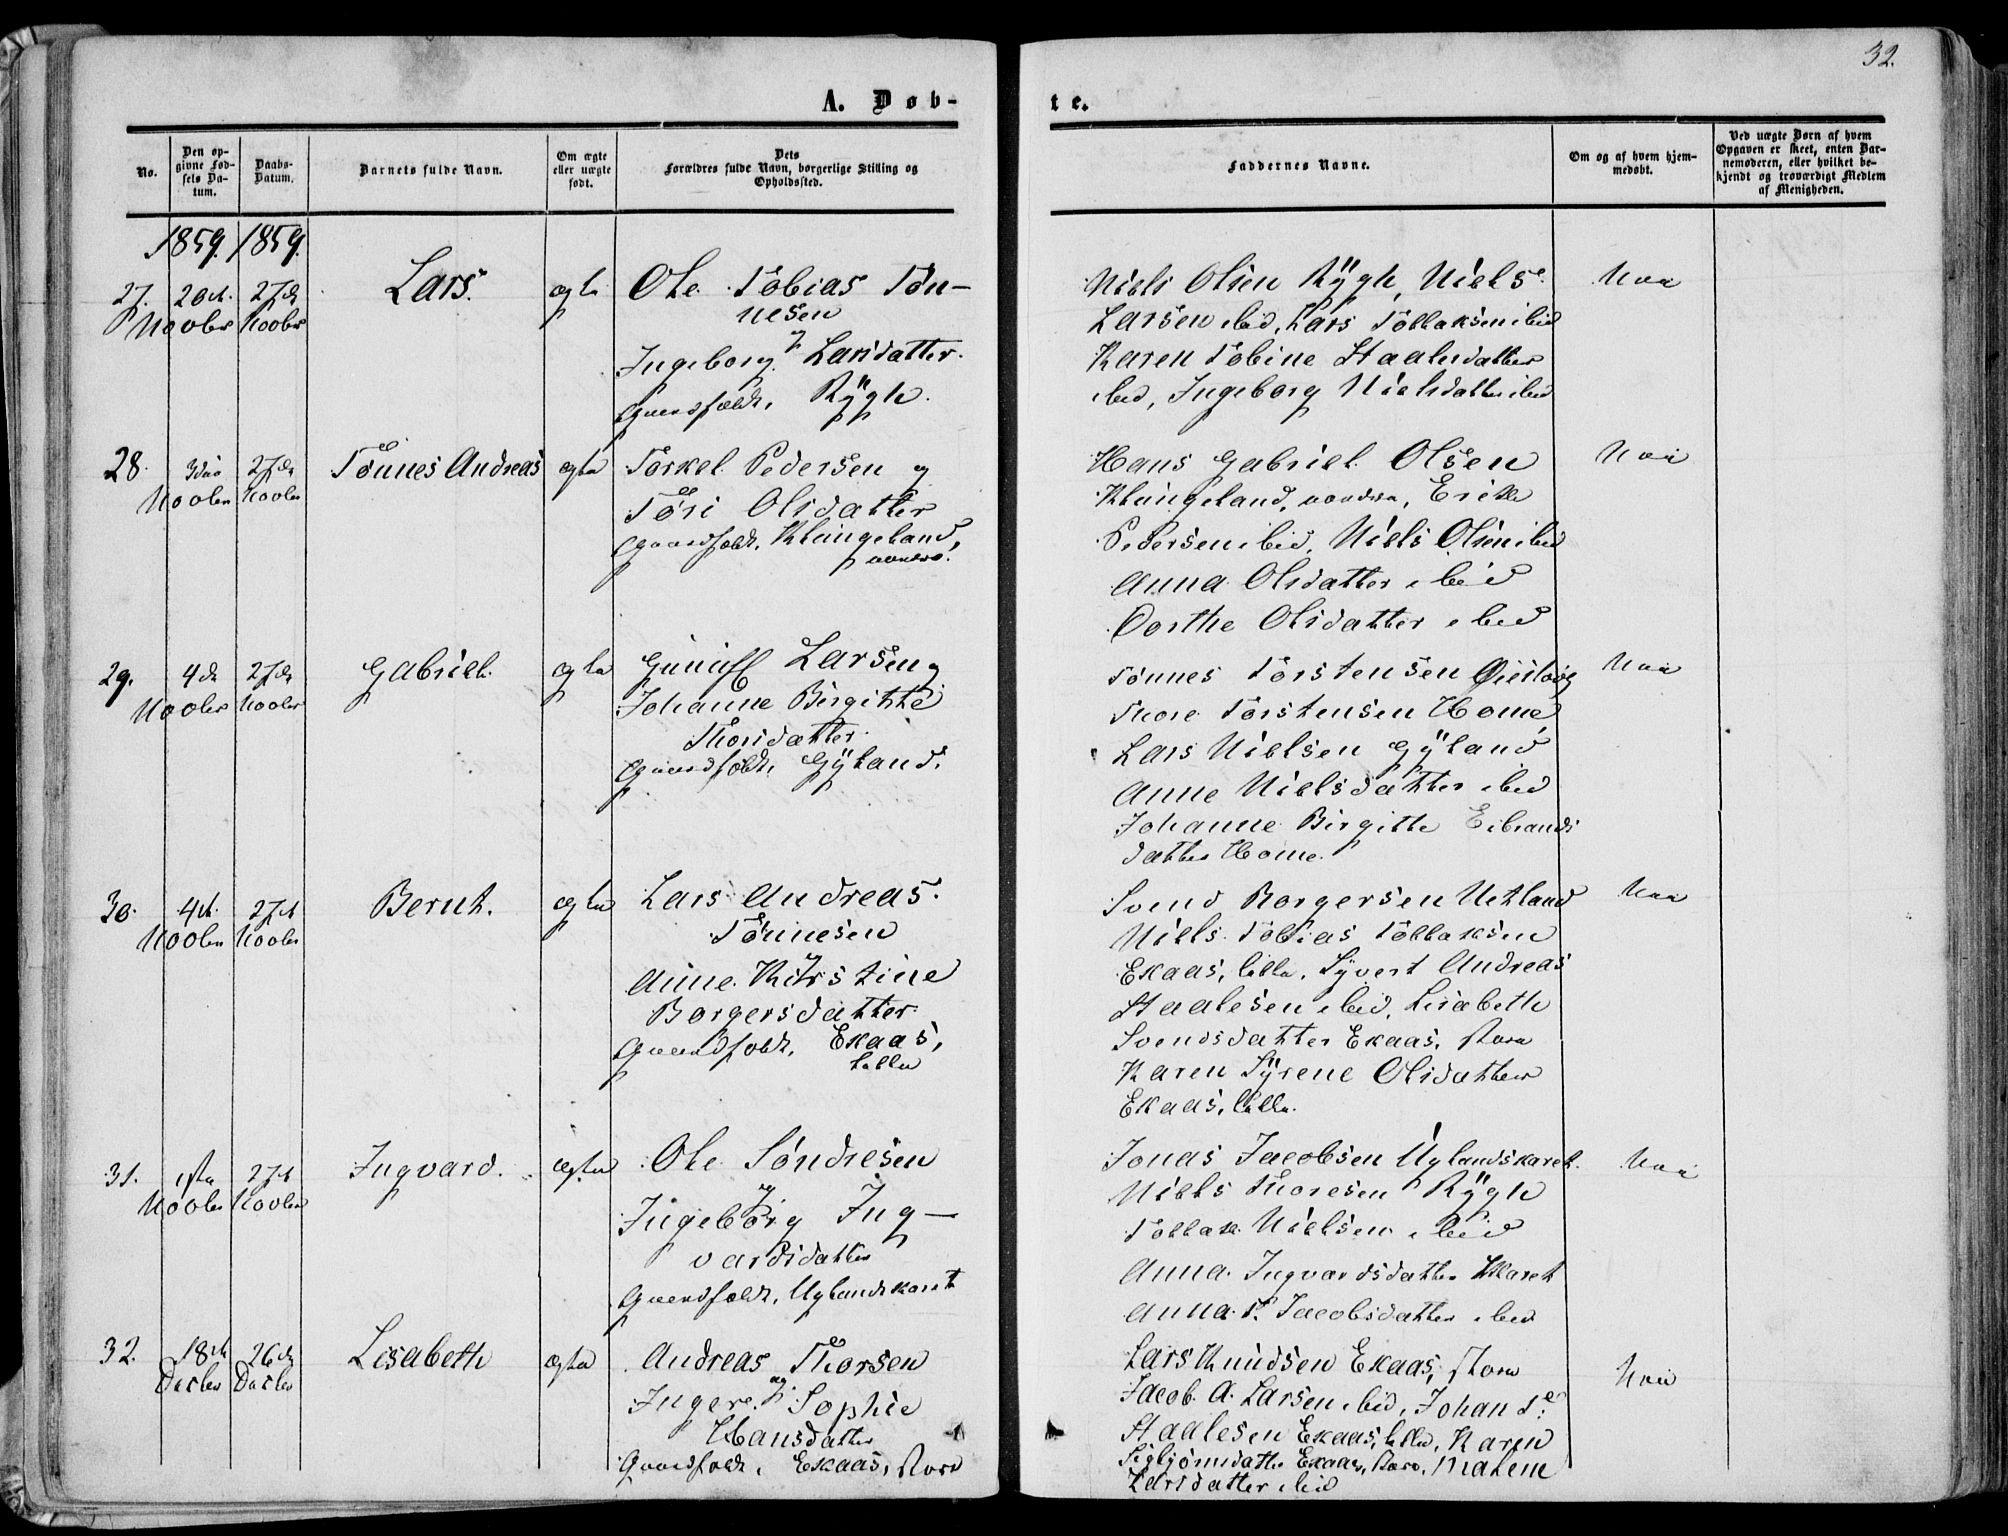 32.
A. Døb-
te.
No.
Den op-
givne Fød-
sels Da-
tum.
Daabs-
Datum.
Barnets fulde Navn.
Om ægte
eller uægte
født.
Dets
Forældres fulde Navn, borgerlige Stilling og
Opholdssted.
Faddernes Navne.
Om og af hvem hjem-
medøbt.
Ved uægte Børn af hvem
Opgaven er skeet, enten Bar-
nemoderen, eller hvilket be-
kjendt og troværdigt Medlem
af Menigheden.
1859. 1859.
27. 20de 27de Lars. ægte Ole Tobias Tøn-
Novbr Novbr nesen
og
Ingeborg Larsdatter.
Gaardfolk, Rÿgh.
Niels Olsen Rÿgh, Niels
Larsen ibid, Lars Tollaksen ibid
Karen Tobine Staalesdatter
ibid, Ingeborg Nielsdatter ibid
Nei
28. 3die 27de Tønnes Andreas ægte Torkel Pedersen og
Novbr Novbr Tøri Olsdatter
Gaardfolk, Klungeland,
nordre.
Hans Gabriel Olsen
Klungeland, nordre, Erik
Pedersen ibid, Niels Olsen ibid
Anna Olsdatter ibid
Dorthe Olsdatter ibid
Nei
29. 4de 27de Gabriel. ægte Gunulf Larsen og
Novbr Novbr Johanne Birgitte
Thorsdatter
Gaardfolk, Gÿland.
Tønnes Torstensen
Thore Torstensen Home,
Lars Nielsen Gÿland
Anne Nielsdatter ibid
Johanne Birgitte Eibrands
datter Home.
Nei
30. 4de 27de Bernt. ægte Lars Andreas
Novbr Novbr Tønnesen
og
Anne Kirstine
Borgersdatter
Gaardfolk, Ekaas,
lille
Svend Borgersen Uetland
Niels Tobias Tollaksen
Ekaas, lille, Sÿvert Andreas
Staalesen ibid, Lisabeth
Svendsdatter Ekaas, store
Karen Sÿrene Olsdatter
Ekaas, lille.
Nei
31. 1ste 27de Ingvard. ægte Ole Søndresen
Novbr Novbr og
Ingeborg Ing-
vardsdatter
Gaardfolk, Uglandskaret
Jonas Jacobsen Uglandskaret.
Niels Thoresen Rÿgh
Tollak Nielsen ibid
Anna Ingvardsdatter Skaret
Anna T. Jacobsdatter ibid
Nei
32. 18de 26de Lisabeth ægte Andreas Thorsen
Decbr Decbr og
Inger Sophie
Hansdatter
Gaardfolk, Ekaas, store
Lars Knudsen Ekaas, store
Jacob A. Larsen ibid, Johan
Staalesen Ekaas, lille, Karen
Sigbjørnsdatter Ekaas, store, Malene
Larsdatter ibid
Nei